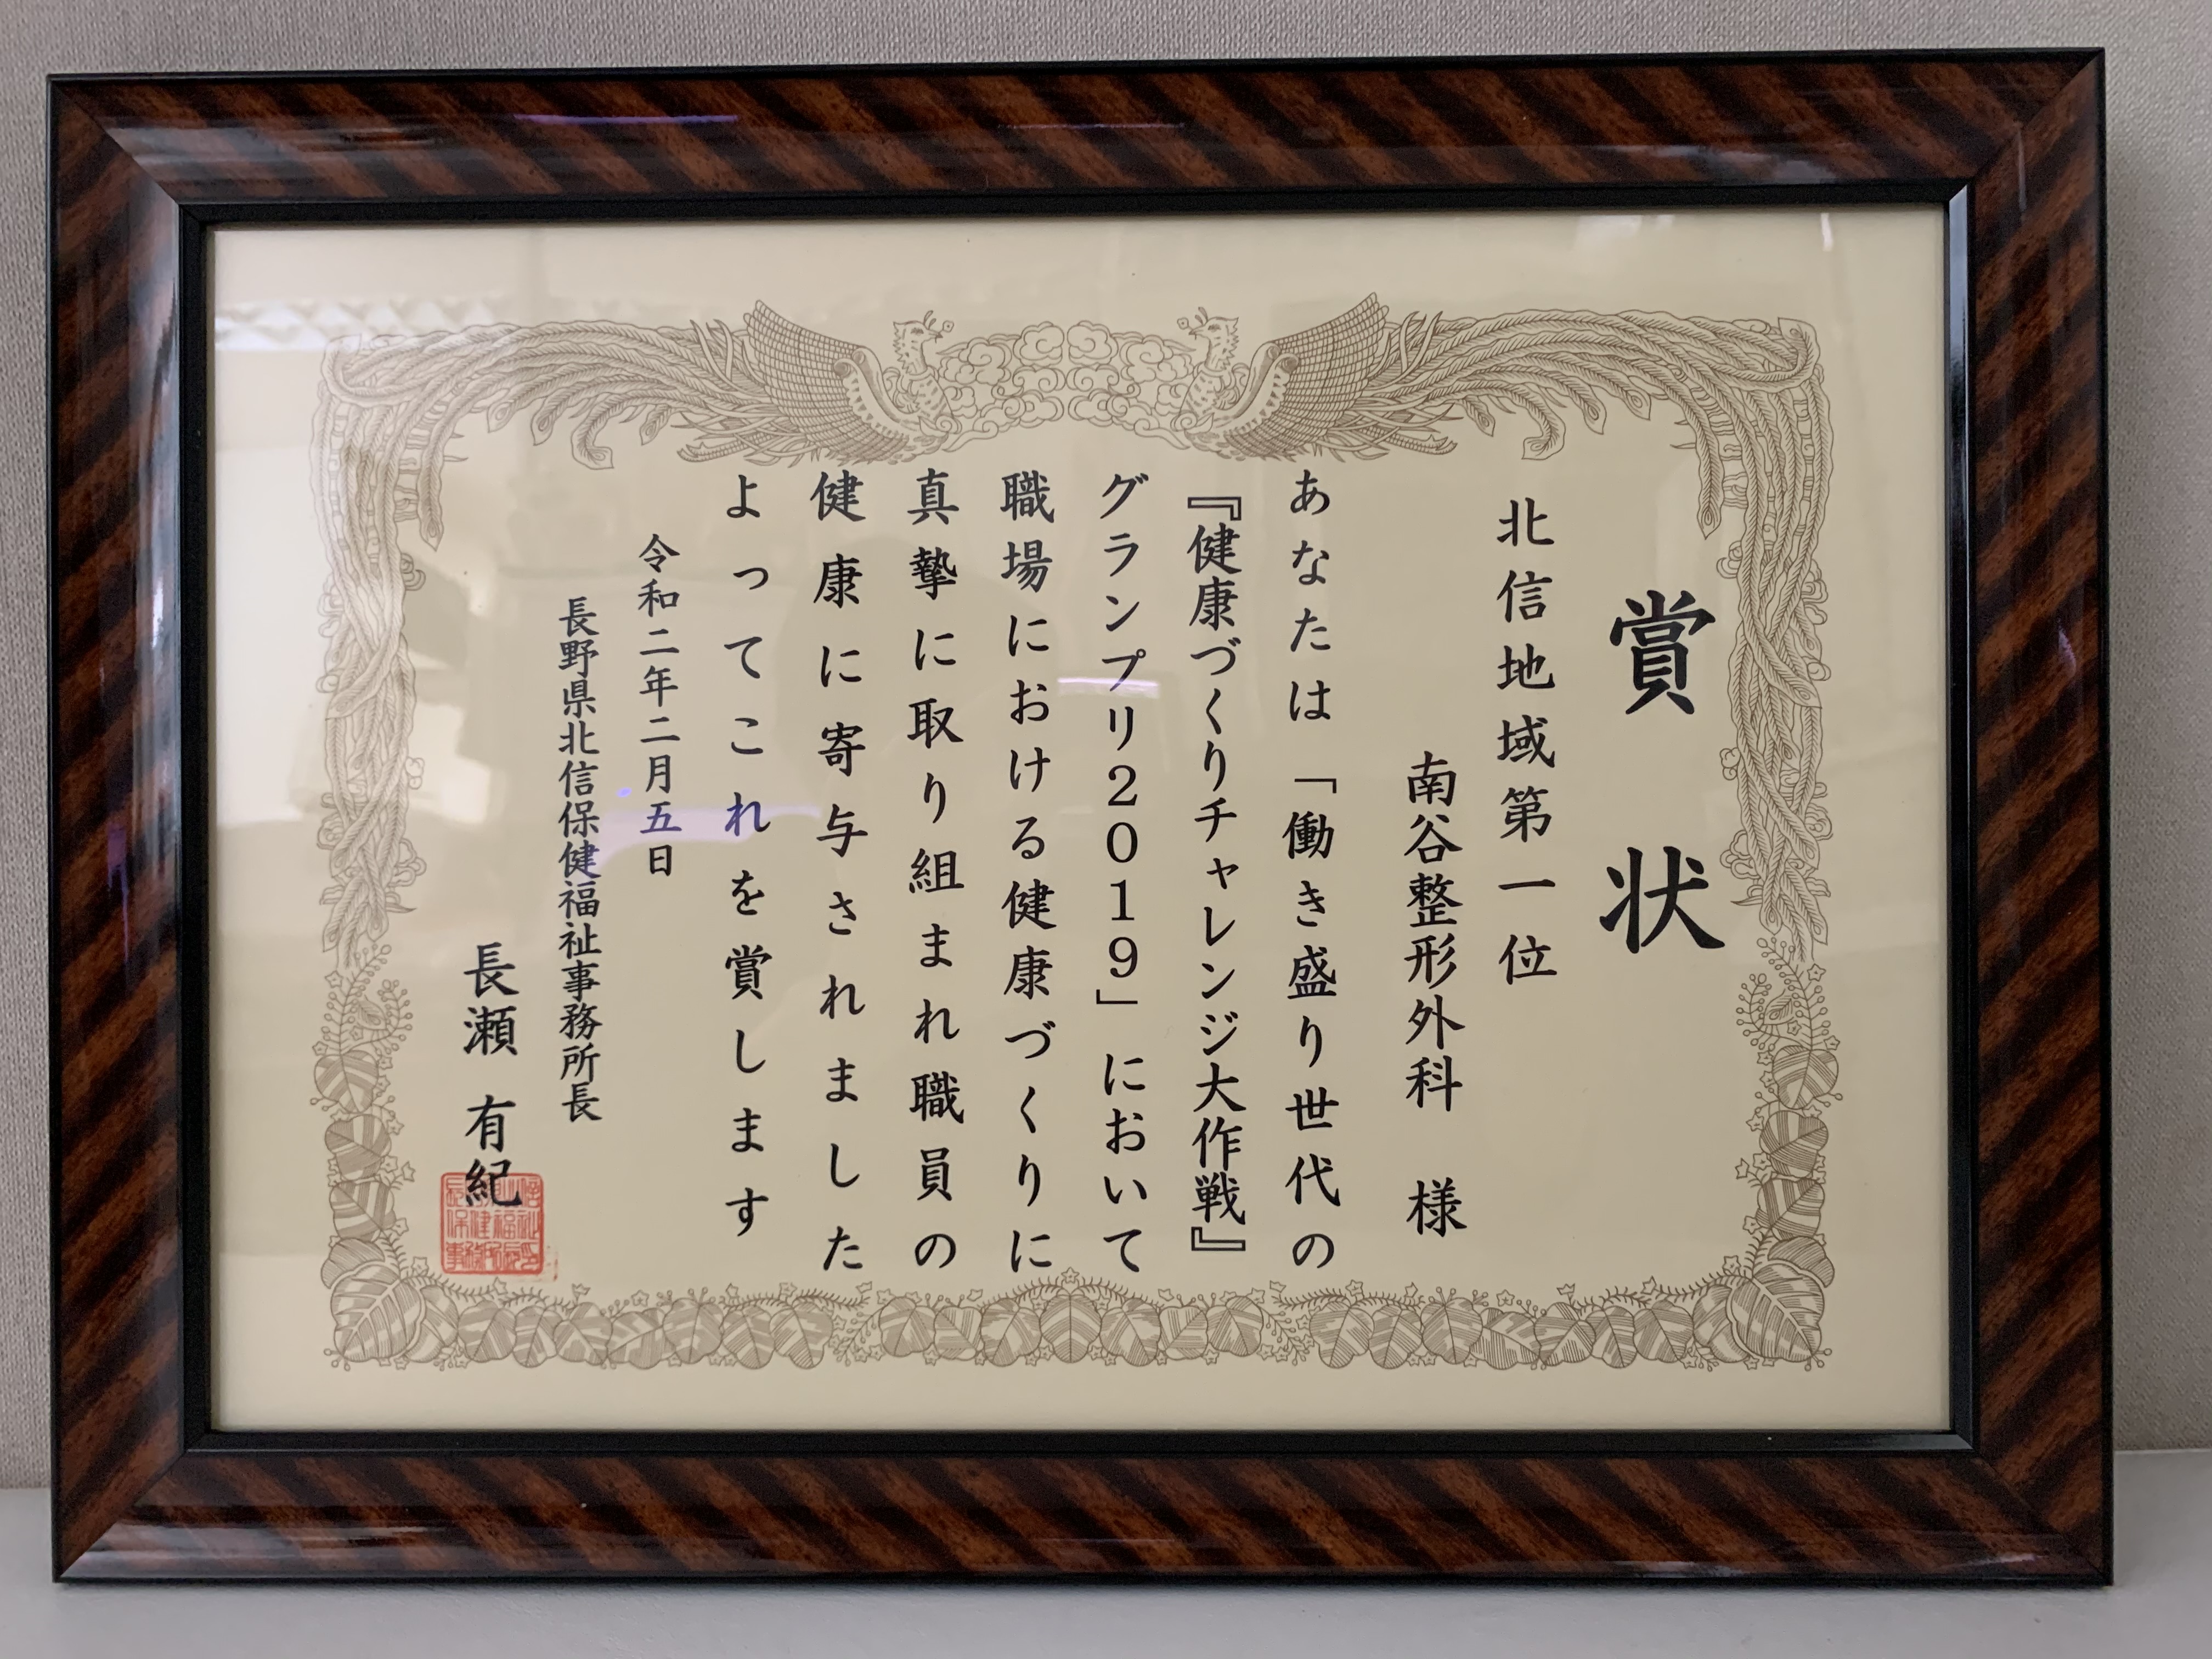 賞状
北信地域第一位
南谷整形外科 様
あなたは「働き盛り世代の
『健康づくりチャレンジ大作戦』
グランプリ2019」において
職場における健康づくりに
真摯に取り組まれ職員の
健康に寄与されました
よってこれを賞します
令和二年二月五日
長野県北信保健福祉事務所長
長瀬 有紀